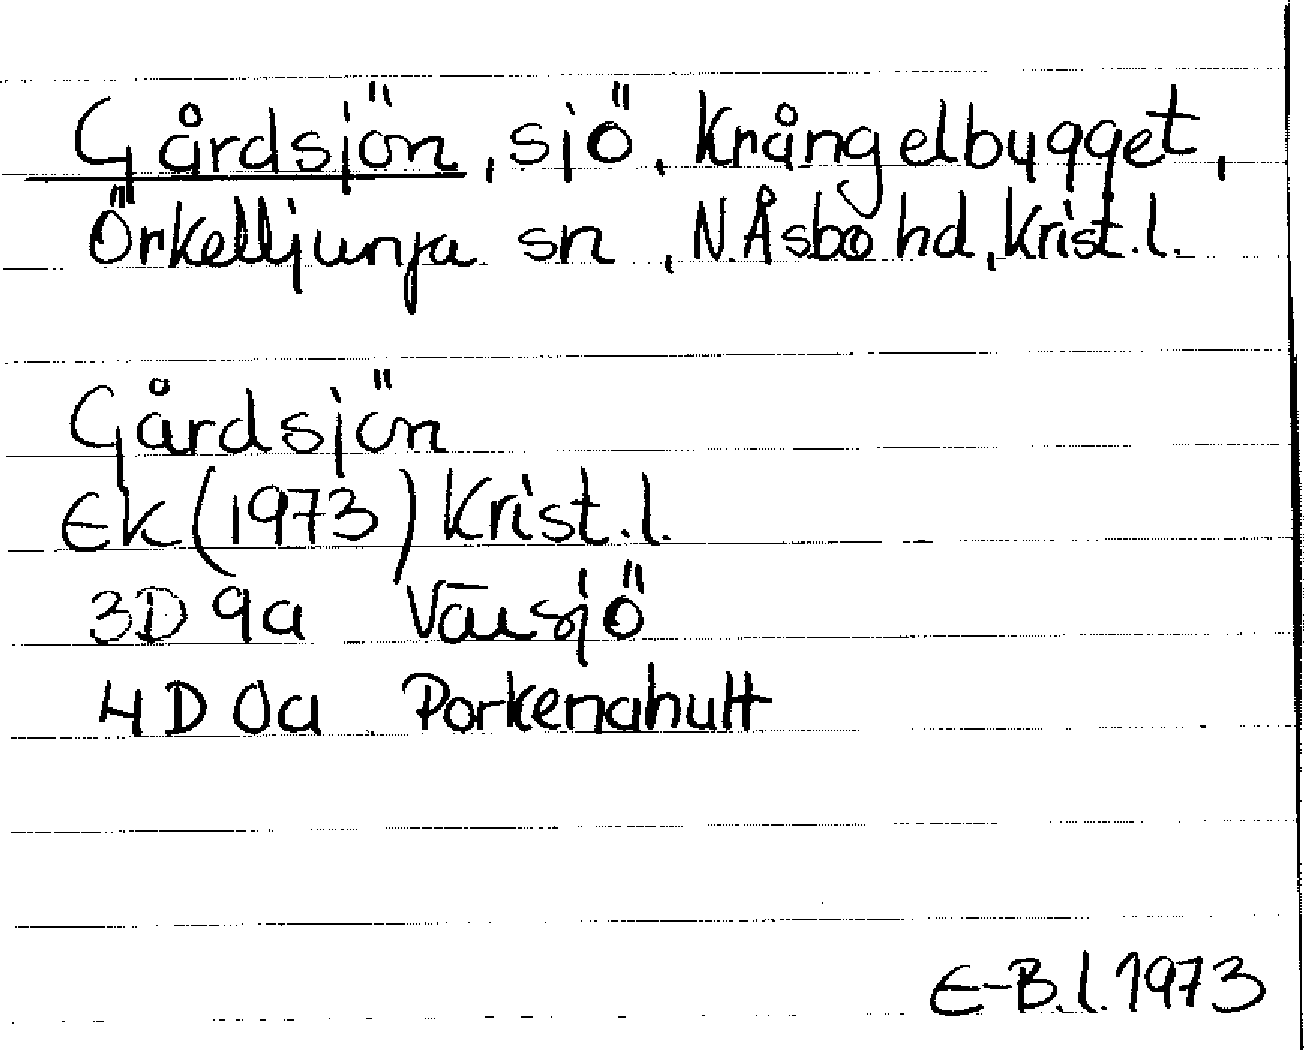 Gårdsjön, sjö, Krångelbygget,
Örkelljunga sn, N.Åsbo hd, Krist.l.
Gårdsjön
EK (1973) Krist.l.
3D 9a Värsjö
4D 0a Porkenahult
E-B.l.1973